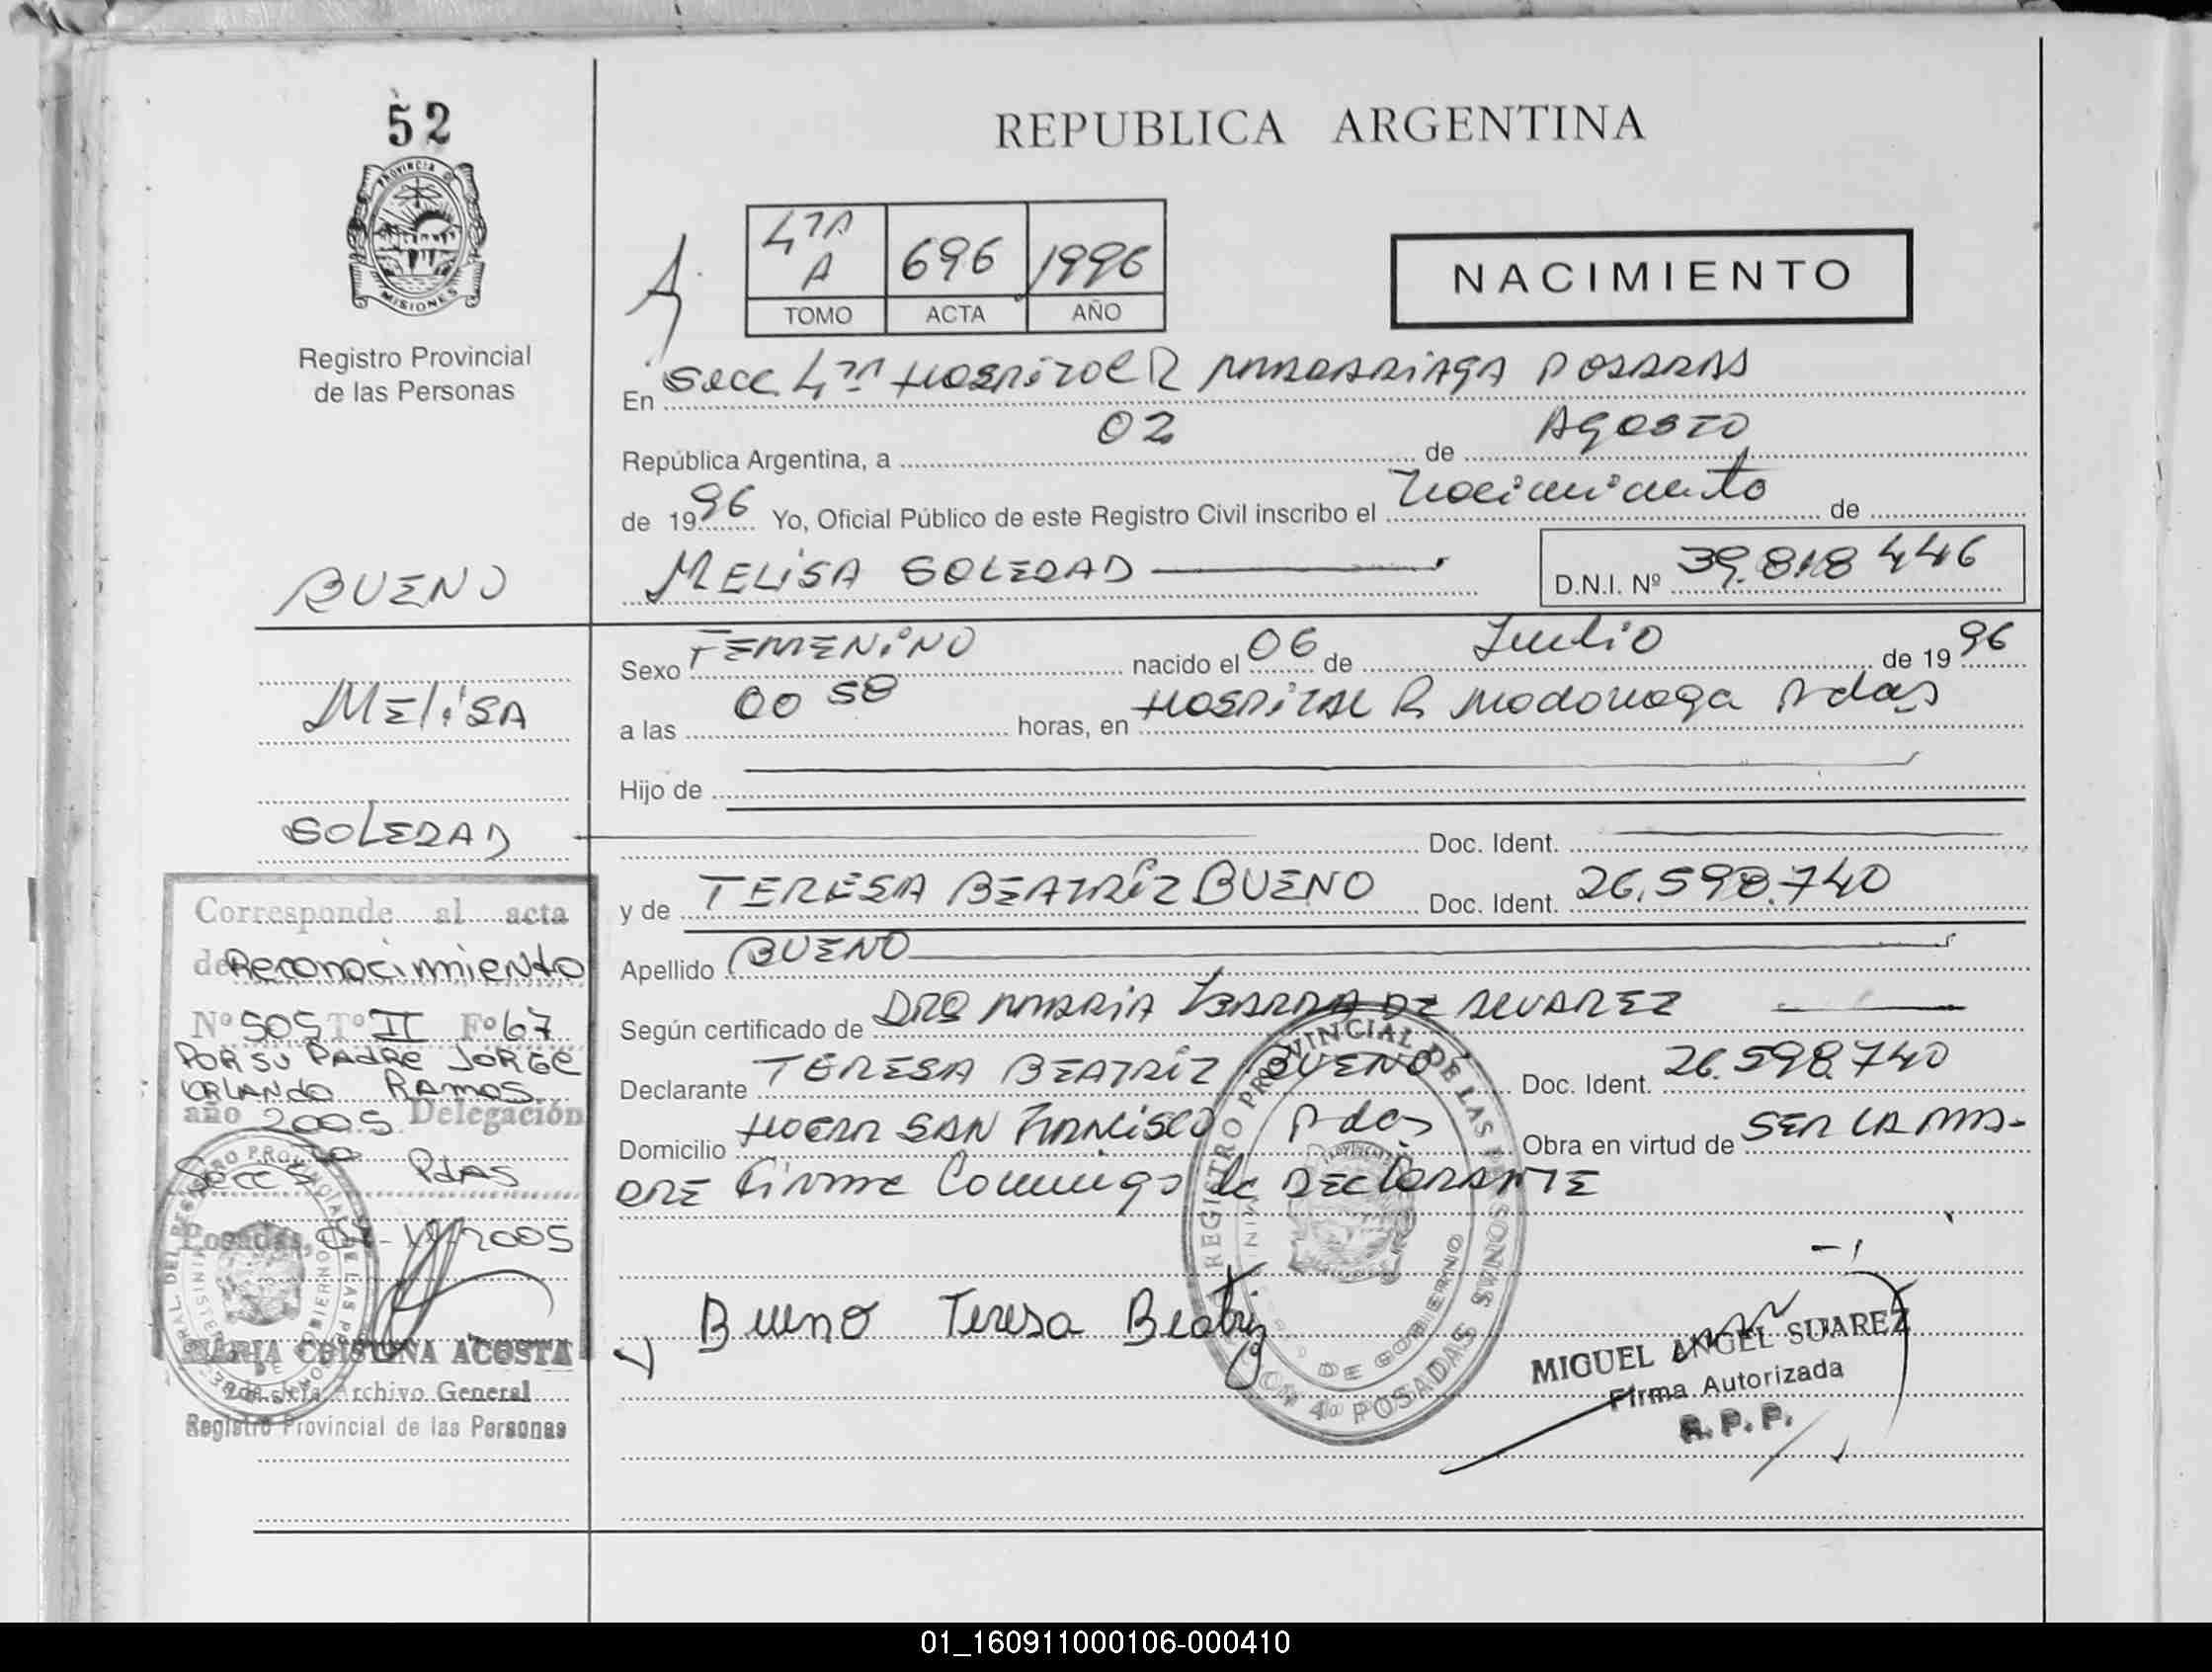 52
PROVINCIA DE
MISIONES
Registro Provincial
de las Personas
REPUBLICA ARGENTINA
4TA A 696 1996
TOMO ACTA AÑO
NACIMIENTO
En Secc 4TA HOSPITAL R MADARRIAGA POSADAS
República Argentina, a 02 de AGOSTO
de 1996 Yo, Oficial Público de este Registro Civil inscribo el Nacimiento de
MELISA SOLEDAD D.N.I. Nº 39.818 446
BUENO
MELISA
SOLEDAD
Sexo FEMENINO nacido el 06 de Julio de 19 96
a las 00 58 horas, en HOSPITAL R Madariaga Pdas
Hijo de
Doc. Ident.
y de TERESA BEATRIZ BUENO Doc. Ident. 26.598.740
Apellido BUENO
Según certificado de DRA MARIA IBARRA DE ALVAREZ
Declarante TERESA BEATRIZ BUENO Doc. Ident. 26.598.740
Domicilio HOGAR SAN FRANCISCO Pdas Obra en virtud de SER LA MA-
DRE Firma Conmigo la DECLARANTE
Bueno Teresa Beatriz
MIGUEL ANGEL SUAREZ
Firma Autorizada
R.P.P.
REGISTRO PROVINCIAL DE LAS PERSONAS
DE GOBIERNO
4ª POSADAS
Corresponde al acta
de Reconocimiento
Nº 505 Tº II Fº 67
POR SU PADRE JORGE
ORLANDO RAMOS
año 2005 Delegación
Secc 5 Pdas
Posadas, 2005
MARIA CRISTINA ACOSTA
Archivo General
Registro Provincial de las Personas
01_160911000106-000410